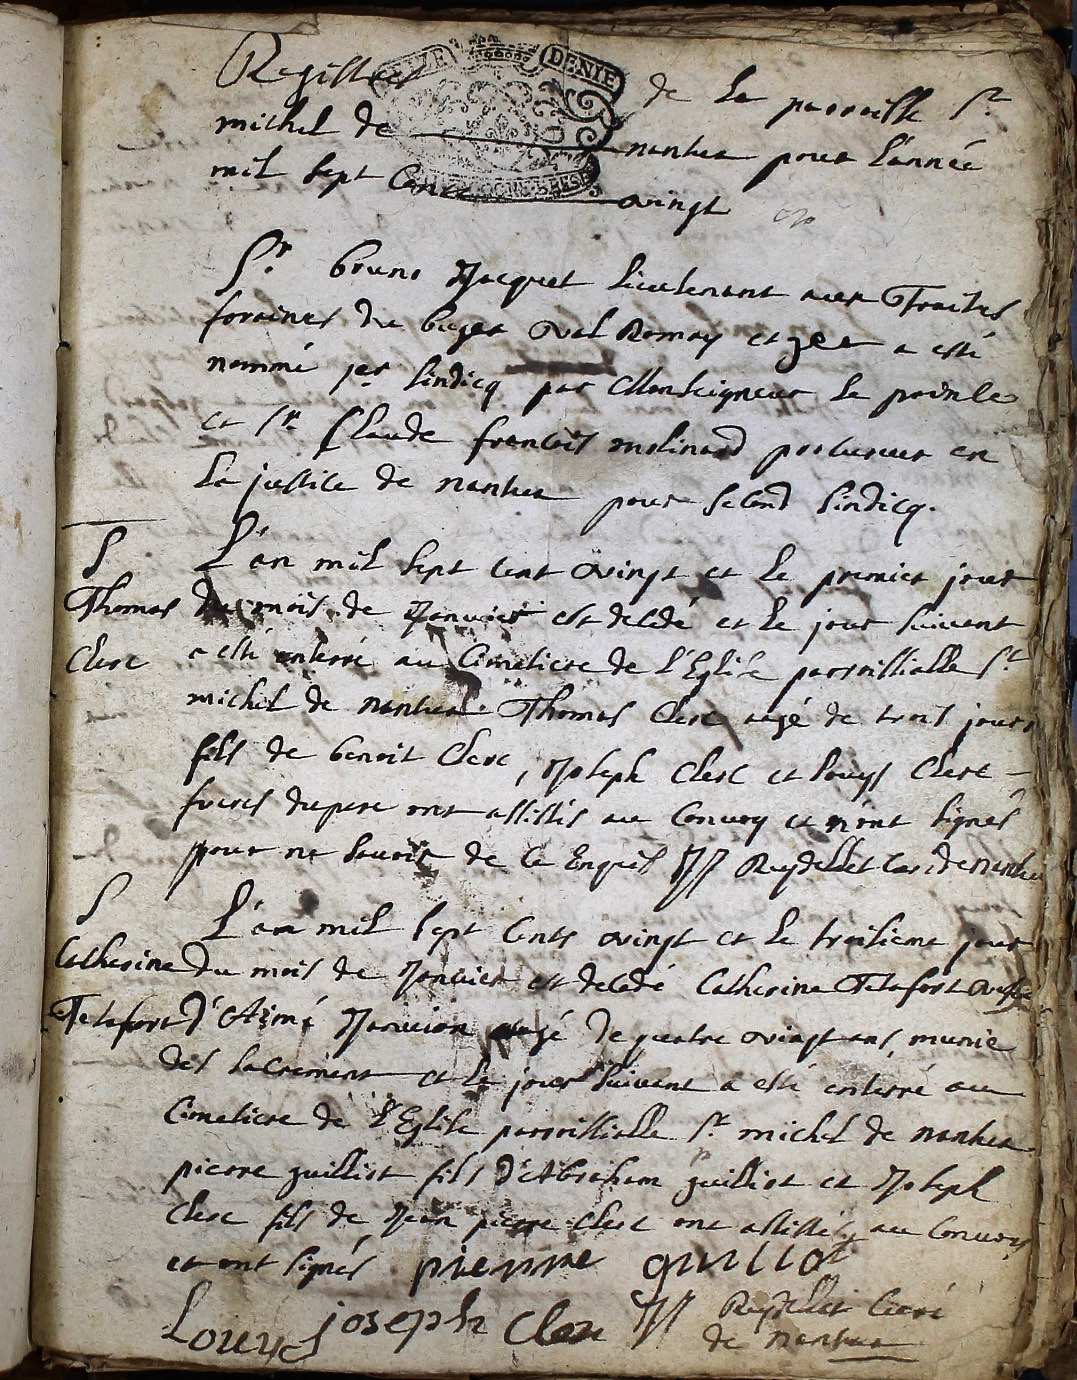 Registres de la parroisse St
michel de nantua pour l'année
mil sept cents vingt
Sr. bruno Jacquet lieutenant aux Traites
foraines du bugea Val Romay et gex a esté
nommé per sindicq par Monseigneur le prince
et Sr Claude francois molinard procureur en
la justice de nantua pour second sindicq.
S
Thomas
Clerc
L'an mil sept cent vingt et le premier jour
du mois de Janvier est decedé et le jour suivant
a esté enterré au Cimetiere de l'Eglise parroissialle St
michel de nantua Thomas Clerc agé de trois jours
fils de benoit Clerc, Joseph Clerc et Louys Clerc
freres du pere ont assistés au Convoy et n'ont signés
pour ne scavoir de ce Enquis Reydellet Curé de nantua
S
Catherine
Tetafort
L'an mil sept cents vingt et le troisieme jour
du mois de Janvier est decedé Catherine Tetafort veufve
d'Aimé Janvion agé de quatre vingt ans, munie
des sacrement et le jour suivant a esté enterré au
Cimetiere de l'Eglise parroissialle St michel de nantua
pierre guilliot fils d'Abraham guilliot et Joseph
Clerc fils de Jean pierre Clerc ont assistés au Convoy
et ont signés pierre guillot
Louys joseph Clerc Reydellet Curé
de nantua